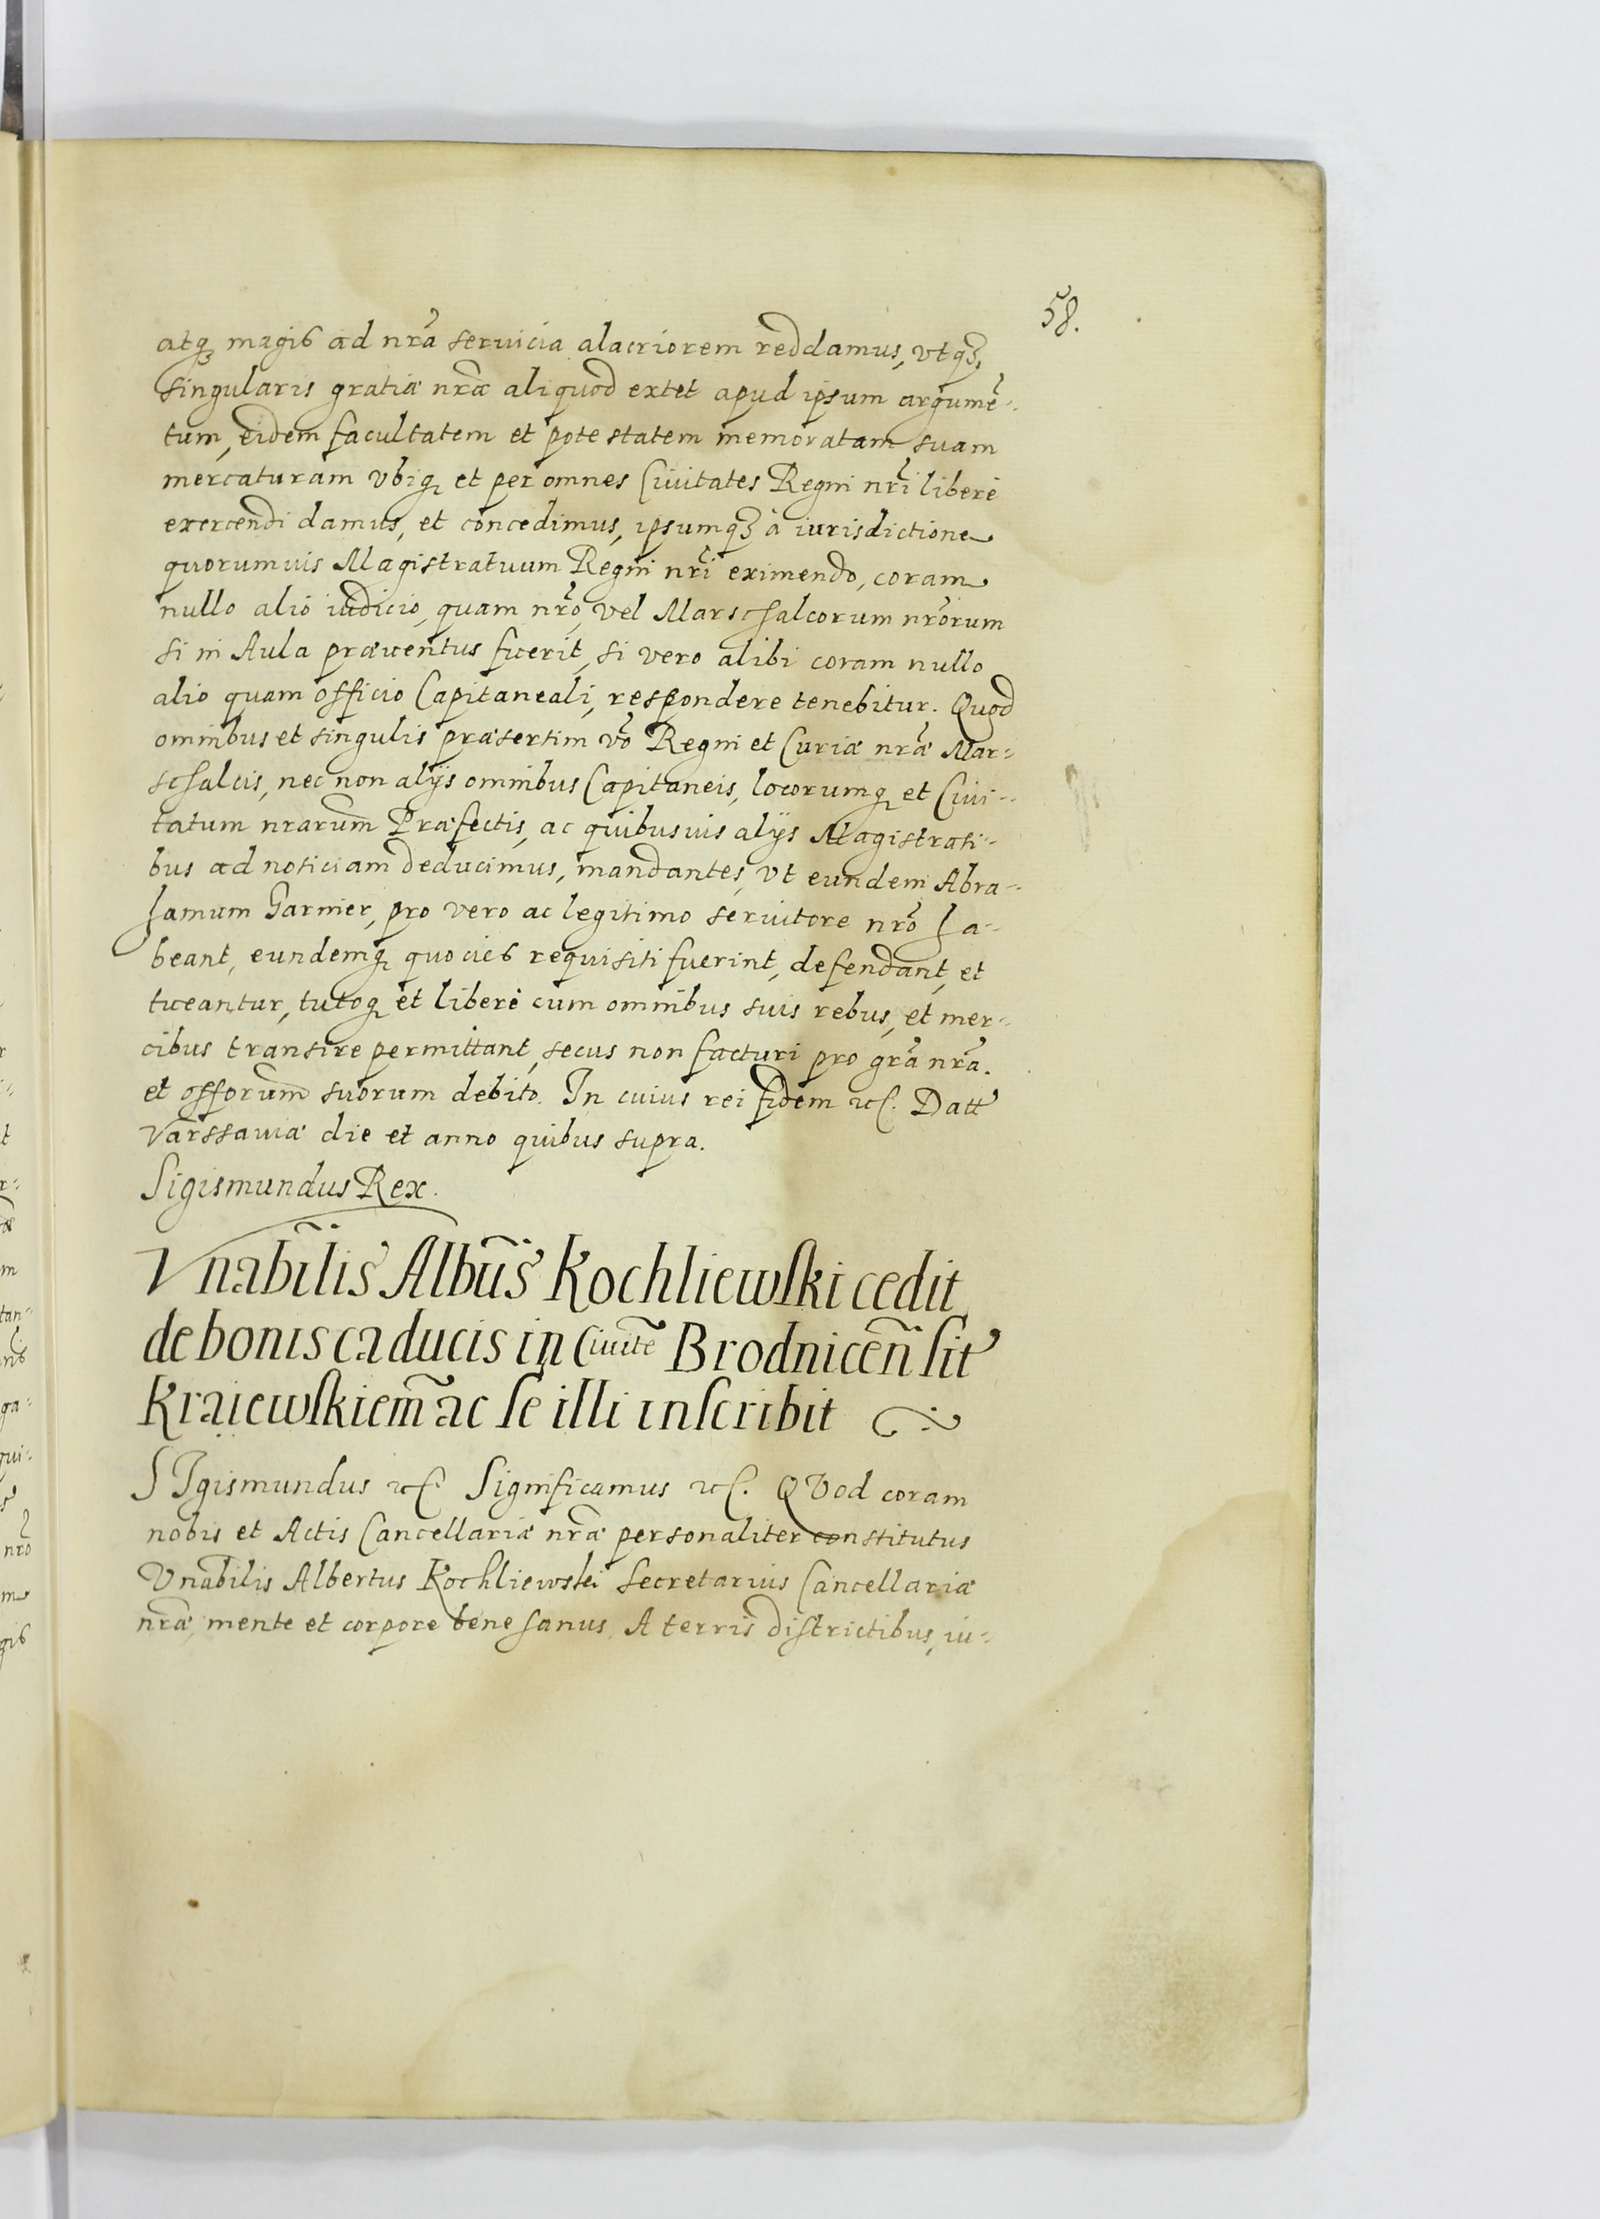 58.
atq₃ magis ad nr̃a seruicia alacriorem reddamus, vtq₃
singularis gratiæ nr̃æ aliquod extet apud ipsum argumẽ-
tum, eidem facultatem et potestatem memoratam suam
mercaturam vbiq₃ et per omnes Ciuitates Regni nr̃i liberè
exercendi damus, et concedimus, ipsumq₃ à iurisdictione
quorumuis Magistratuum Regni nr̃i eximendo, coram
nullo alio iudicio, quam nr̃o, vel Marschalcorum nr̃orum
si in Aula præuentus fuerit, si vero alibi coram nullo
alio quam officio Capitaneali, respondere tenebitur. Quod
omnibus et singulis præsertim võ Regni et Curiæ nr̃æ Mar-
schalcis, nec non alijs omnibus Capitaneis, locorumq₃ et Ciui-
tatum nrarum̃ Præfectis, ac quibusuis alijs Magistrati-
bus ad noticiam deducimus, mandantes, vt eundem Abra-
hamum Garnier, pro vero ac legitimo seruitore nr̃o ha-
beant, eundemq₃ quocies requisiti fuerint, defendant, et
tueantur, tutoq₃ et liberè cum omnibus suis rebus, et mer-
cibus transire permittant, secus non facturi pro gr̃a nr̃a.
et offorum̃ suorum debito. In cuius rei fidem etc. Datt
Varssauiæ die et anno quibus supra.
Sigismundus Rex.
Vnabĩlis Albũs Kochliewski cedit
de bonis caducis in Ciuitẽ Brodniceñ sit
Kraiewskiem̃ ac se illi inscribit
SIgismundus etc. Significamus etc. QVod coram
nobis et Actis Cancellariæ nr̃æ personaliter constitutus
Vnabĩlis Albertus Kochliewski Secretarius Cancellariæ
nr̃æ, mente et corpore bene sanus, A terris districtibus, iu-